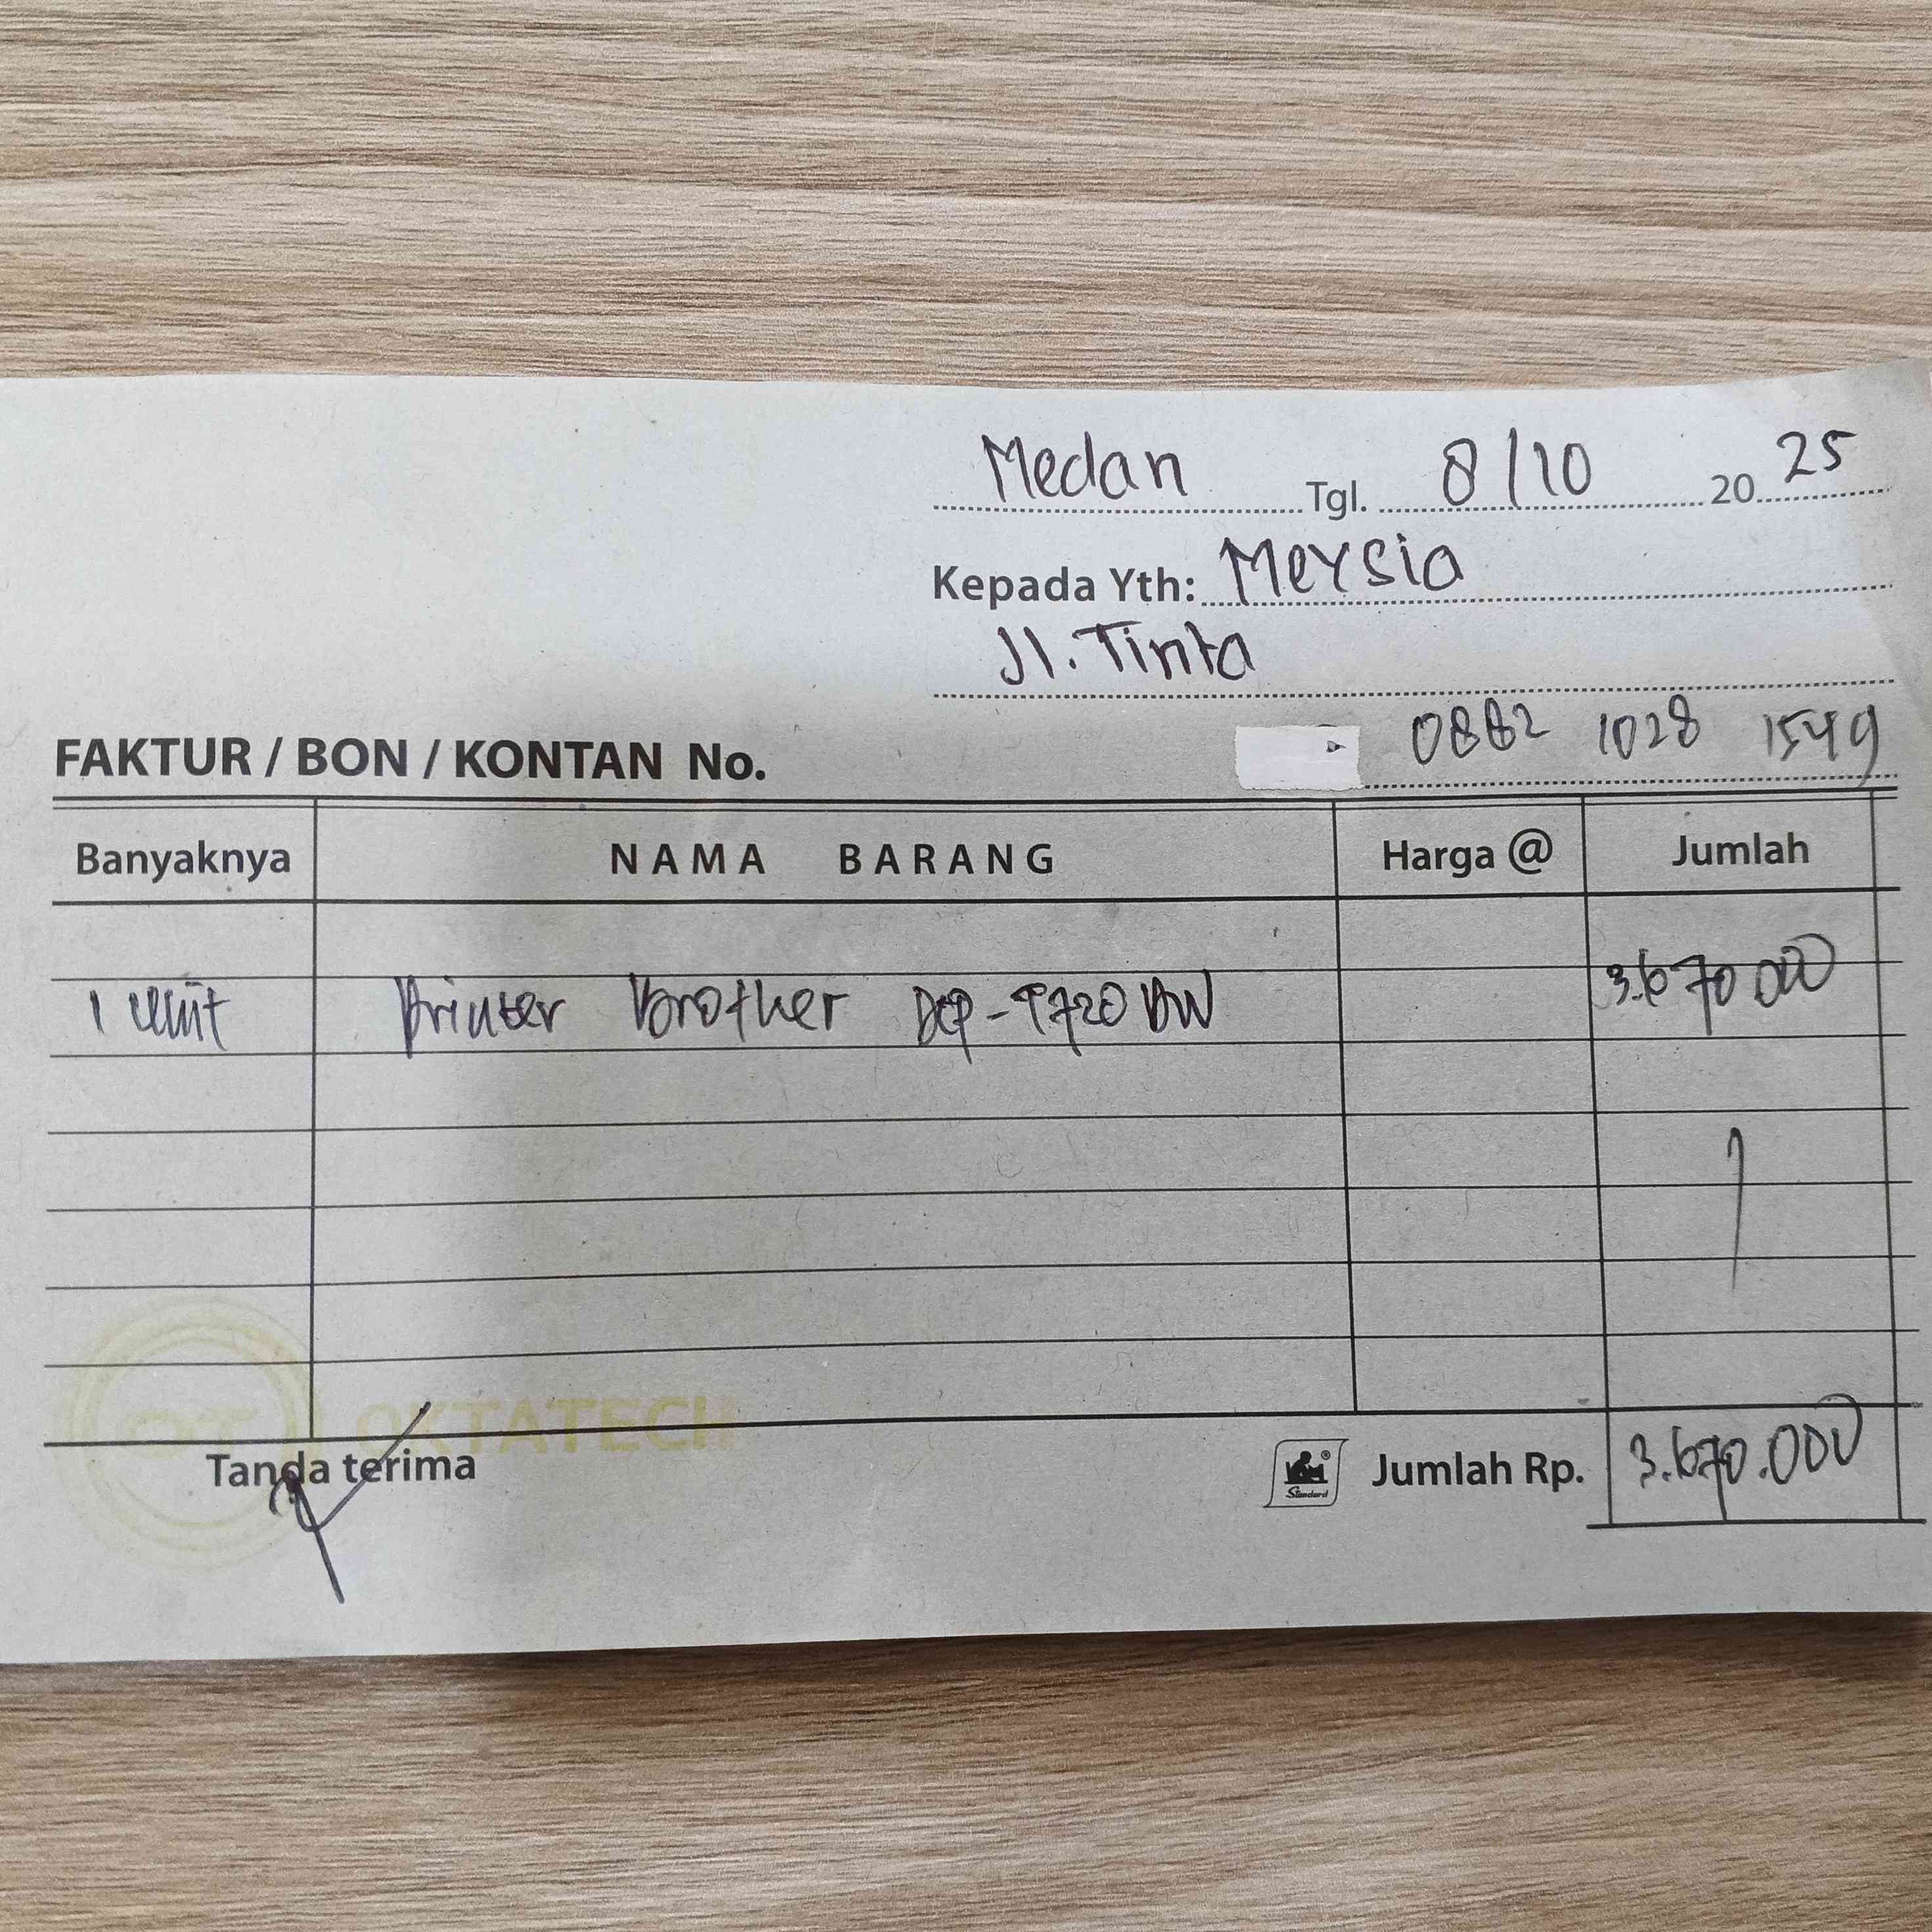 Medan Tgl. 8/10 20 25
Kepada Yth: Meysia
Jl. Tinta
0882 1028 1549
FAKTUR / BON / KONTAN No.
Banyaknya NAMA BARANG Harga @ Jumlah
1 unit Printer Brother DCP-T720DW 3.670.000
OKTATECH
Tanda terima Standard Jumlah Rp. 3.670.000